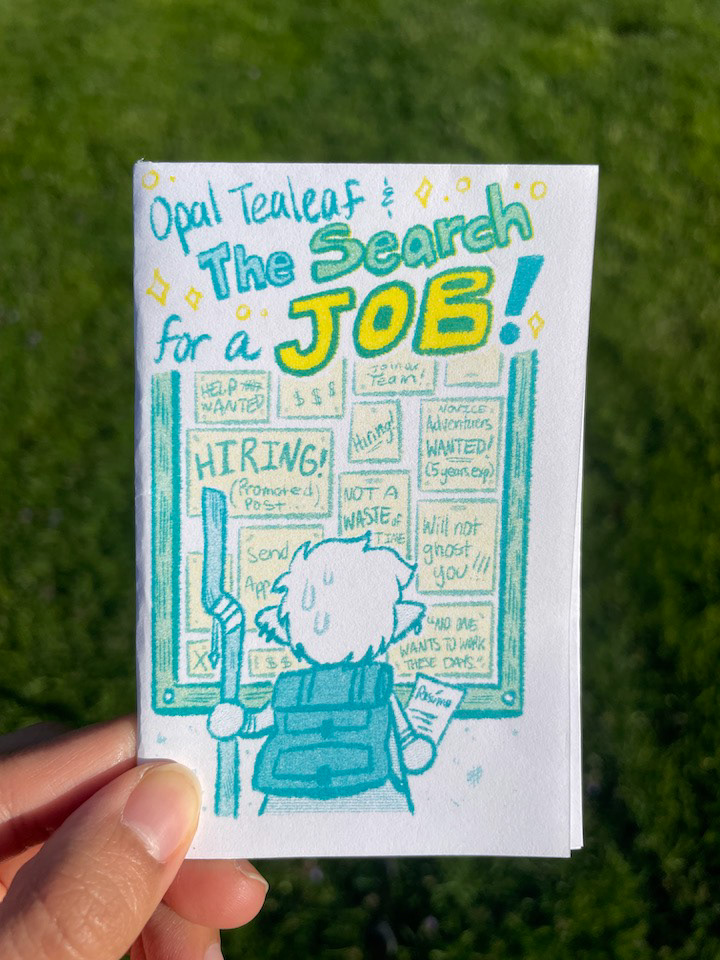 Opal Tealeaf &
The Search
for a JOB!
HELP
WANTED
$$$
Join our
Team!
Hiring!
NOVICE
Adventurers
WANTED!
(5 years exp)
HIRING!
(Promoted)
Post
NOT A
WASTE of
TIME
Send
App
Will not
ghost
you!!!
"NO ONE
WANTS TO WORK
THESE DAYS."
X
!$$
Resume